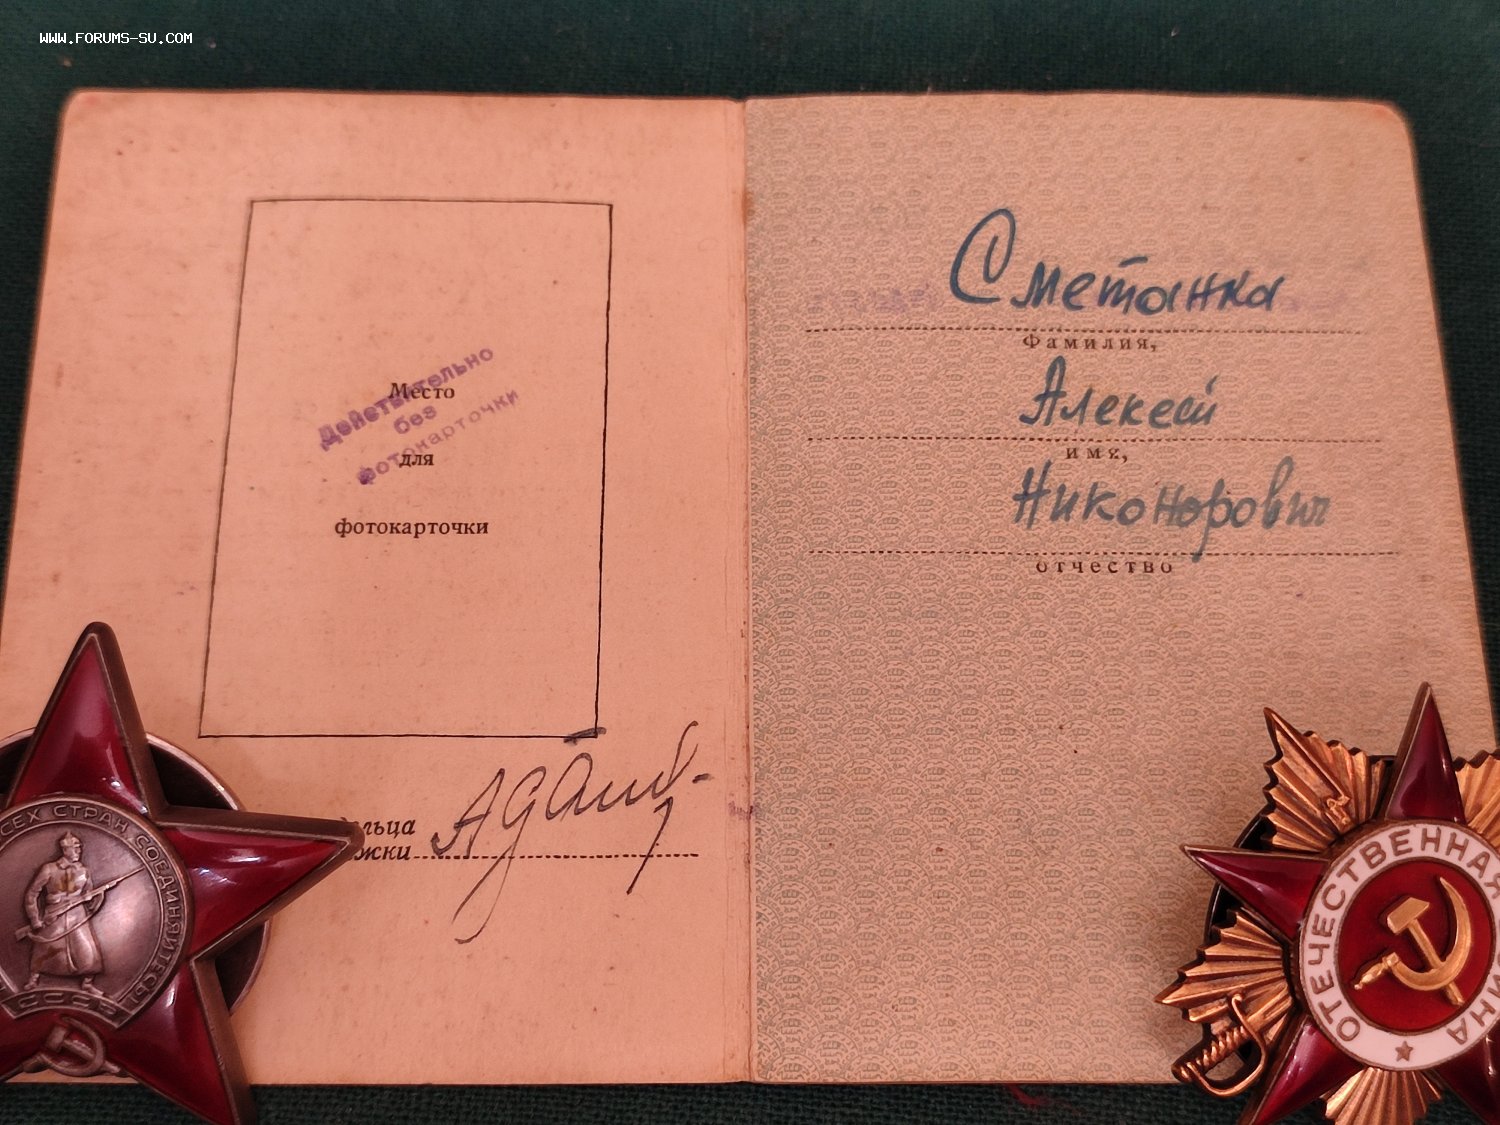 WWW.FORUMS-SU.COM
Место
для
фотокарточки
Действительно
без
фотокарточки
дельца
жки
Сметанка
Фамилия,
Алексей
имя,
Никонорович
отчество
СЕХ СТРАН СОЕДИНЯЙТЕСЬ
СССР
ОТЕЧЕСТВЕННАЯ
ЙНА